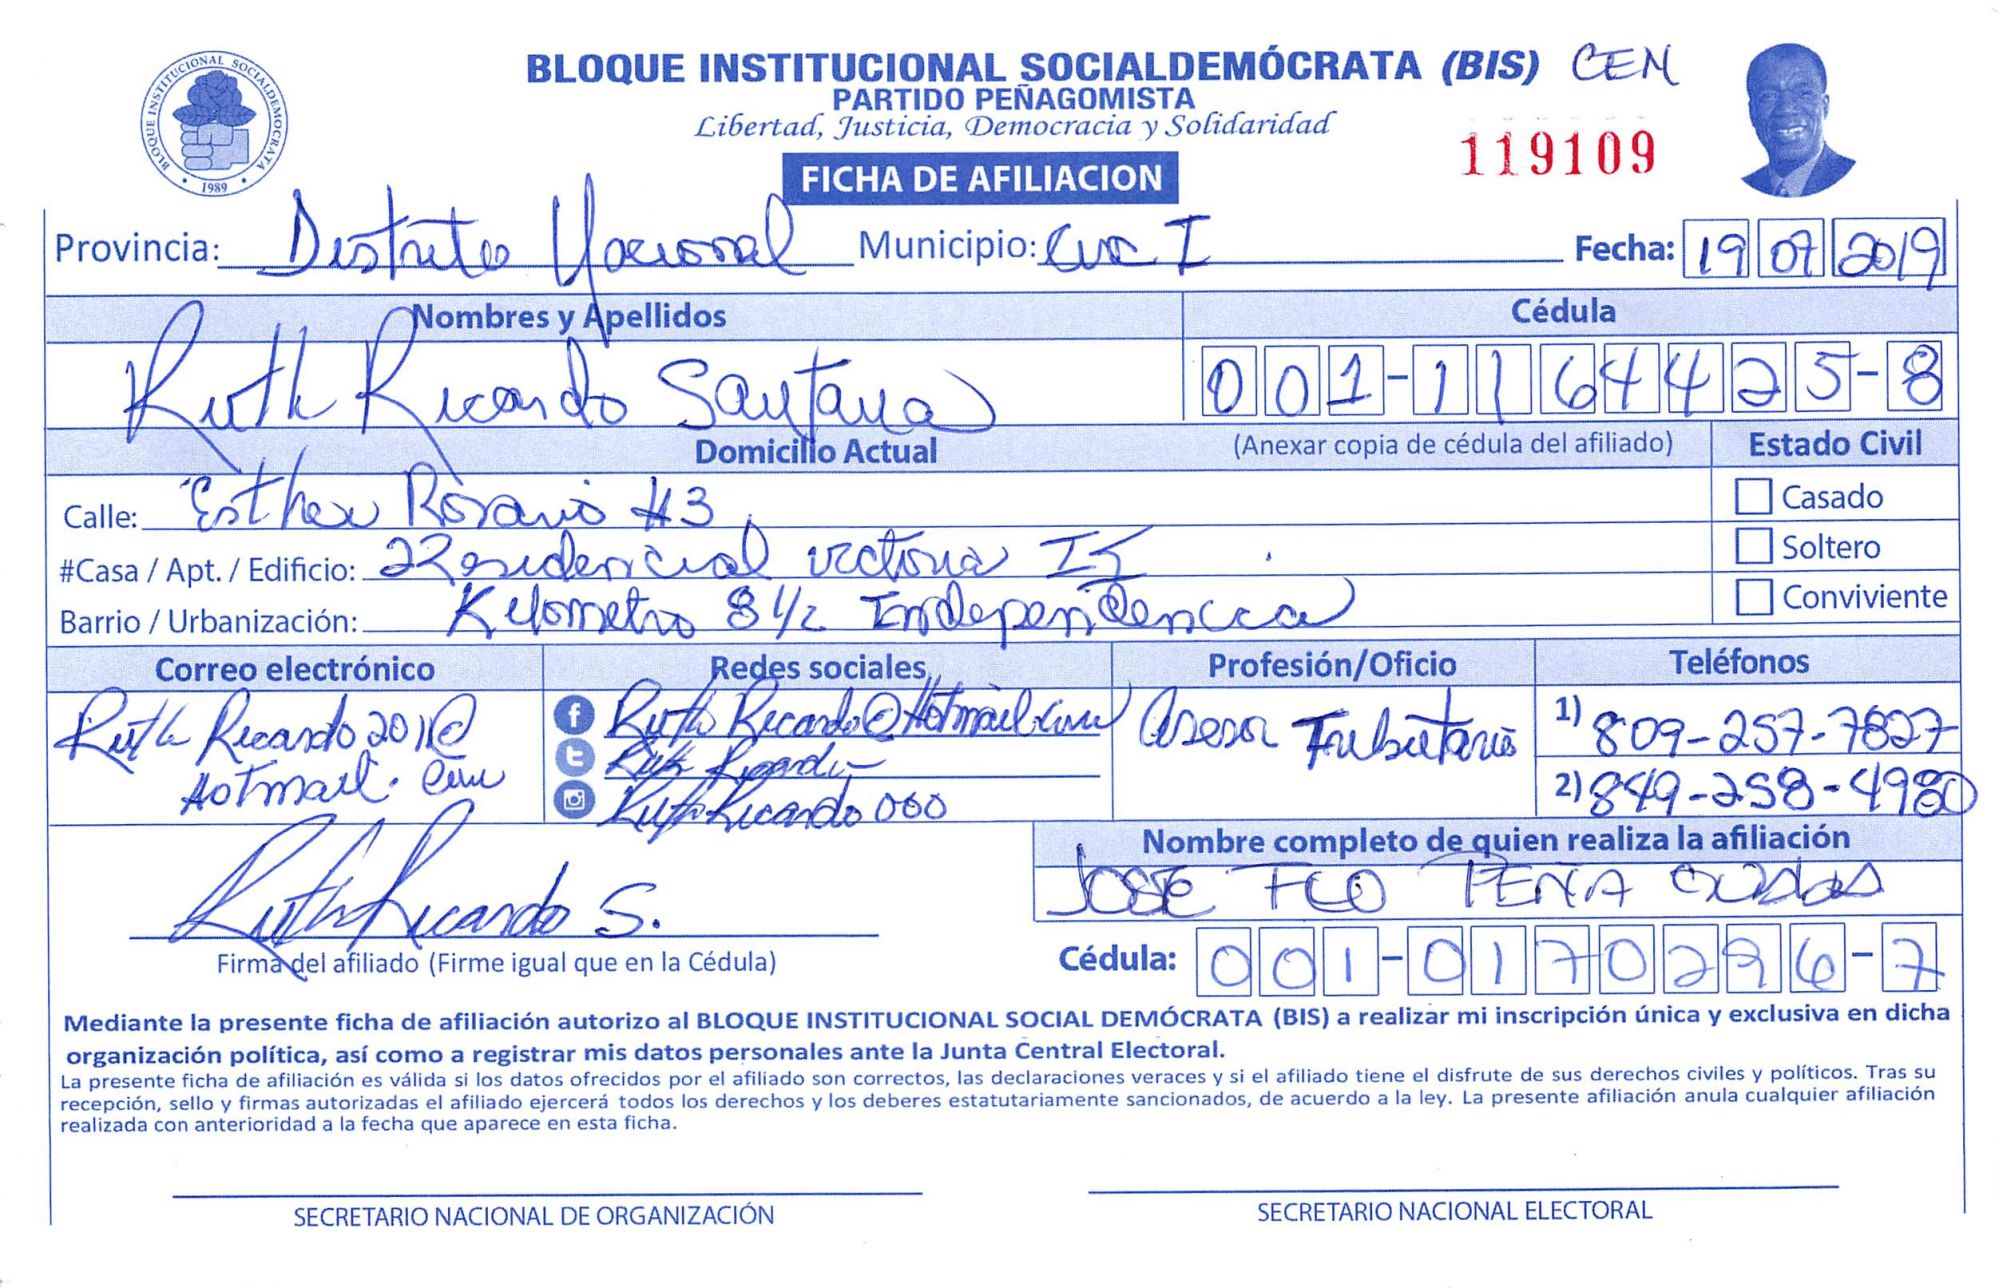 BLOQUE INSTITUCIONAL SOCIALDEMOCRATA
1989
BLOQUE INSTITUCIONAL SOCIALDEMÓCRATA (BIS) CEN
PARTIDO PEÑAGOMISTA
Libertad, Justicia, Democracia y Solidaridad
119109
FICHA DE AFILIACION
Provincia: Distrito Nacional Municipio: Circ I Fecha: 19 07 2019
Nombres y Apellidos Cédula
Ruth Ricardo Santana 001-1164425-8
Domicilio Actual (Anexar copia de cédula del afiliado) Estado Civil
Calle: Esther Rosario #3 Casado
#Casa / Apt. / Edificio: Residencial victoria Soltero
Barrio / Urbanización: Kilometro 8 1/2 Independencia Conviviente
Correo electrónico Redes sociales Profesión/Oficio Teléfonos
Ruth Ricardo2011@ Ruth Ricardo@Hotmail.com Asesor Tributario 1) 809-257-7827
Hotmail.com Ruth Ricardo 2) 849-258-4980
Ruth Ricardo 000
Nombre completo de quien realiza la afiliación
JOSE FCO PEÑA
Ruth Ricardo S.
Firma del afiliado (Firme igual que en la Cédula) Cédula: 001-0170296-7
Mediante la presente ficha de afiliación autorizo al BLOQUE INSTITUCIONAL SOCIAL DEMÓCRATA (BIS) a realizar mi inscripción única y exclusiva en dicha
organización política, así como a registrar mis datos personales ante la Junta Central Electoral.
La presente ficha de afiliación es válida si los datos ofrecidos por el afiliado son correctos, las declaraciones veraces y si el afiliado tiene el disfrute de sus derechos civiles y políticos. Tras su
recepción, sello y firmas autorizadas el afiliado ejercerá todos los derechos y los deberes estatutariamente sancionados, de acuerdo a la ley. La presente afiliación anula cualquier afiliación
realizada con anterioridad a la fecha que aparece en esta ficha.
SECRETARIO NACIONAL DE ORGANIZACIÓN SECRETARIO NACIONAL ELECTORAL